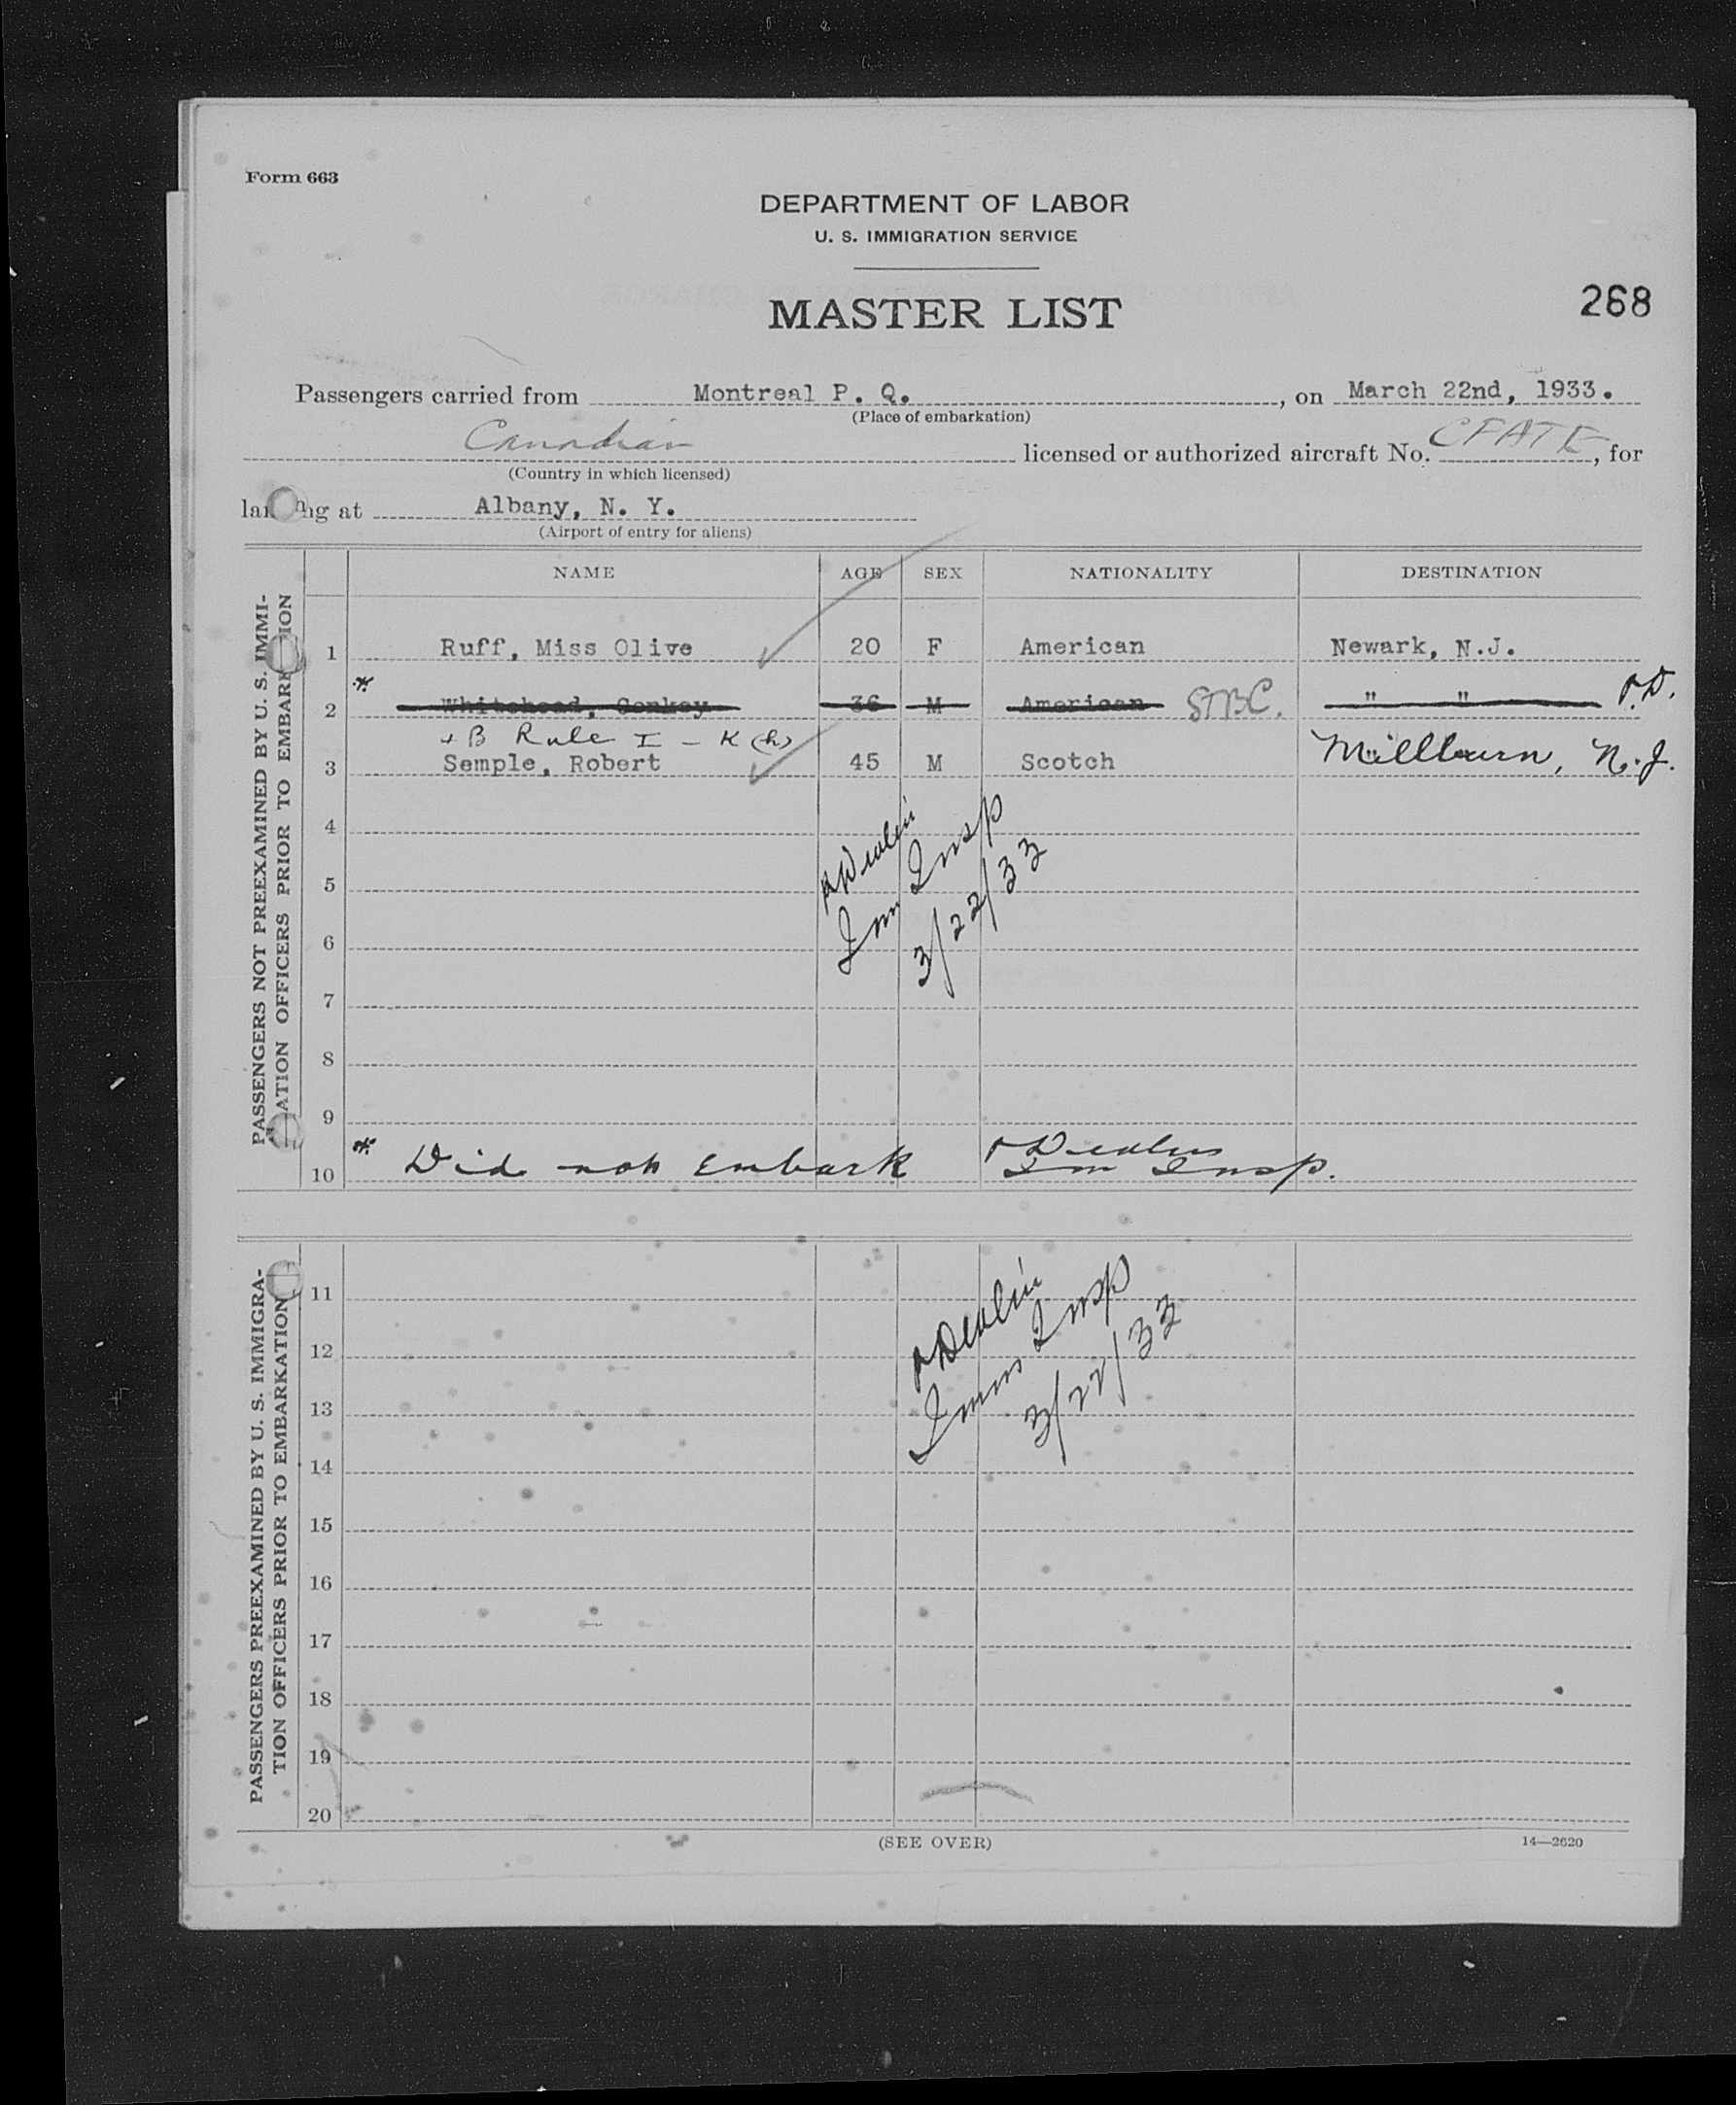 Form 663
DEPARTMENT OF LABOR
U. S. IMMIGRATION SERVICE
MASTER LIST
268
Passengers carried from Montreal P. Q. , on March 22nd, 1933.
(Place of embarkation)
Canadian licensed or authorized aircraft No. CFATE, for
(Country in which licensed)
landing at Albany, N. Y.
(Airport of entry for aliens)
PASSENGERS NOT PREEXAMINED BY U. S. IMMI-
GRATION OFFICERS PRIOR TO EMBARKATION
NAME AGE SEX NATIONALITY DESTINATION
1 Ruff, Miss Olive 20 F American Newark, N.J.
2 * Whitehead, Conkey 36 M American STBC. " " P.D.
+ B Rule I - K (h)
3 Semple, Robert 45 M Scotch " Millburn, N.J.
4
5
6
Imm Insp
3/22/33
7
8
9
10 * Did not Embark
Im Insp.
PASSENGERS PREEXAMINED BY U. S. IMMIGRA-
TION OFFICERS PRIOR TO EMBARKATION
11
12
13
14
Imm Insp
3/22/33
15
16
17
18
19
20
(SEE OVER)
14—2620